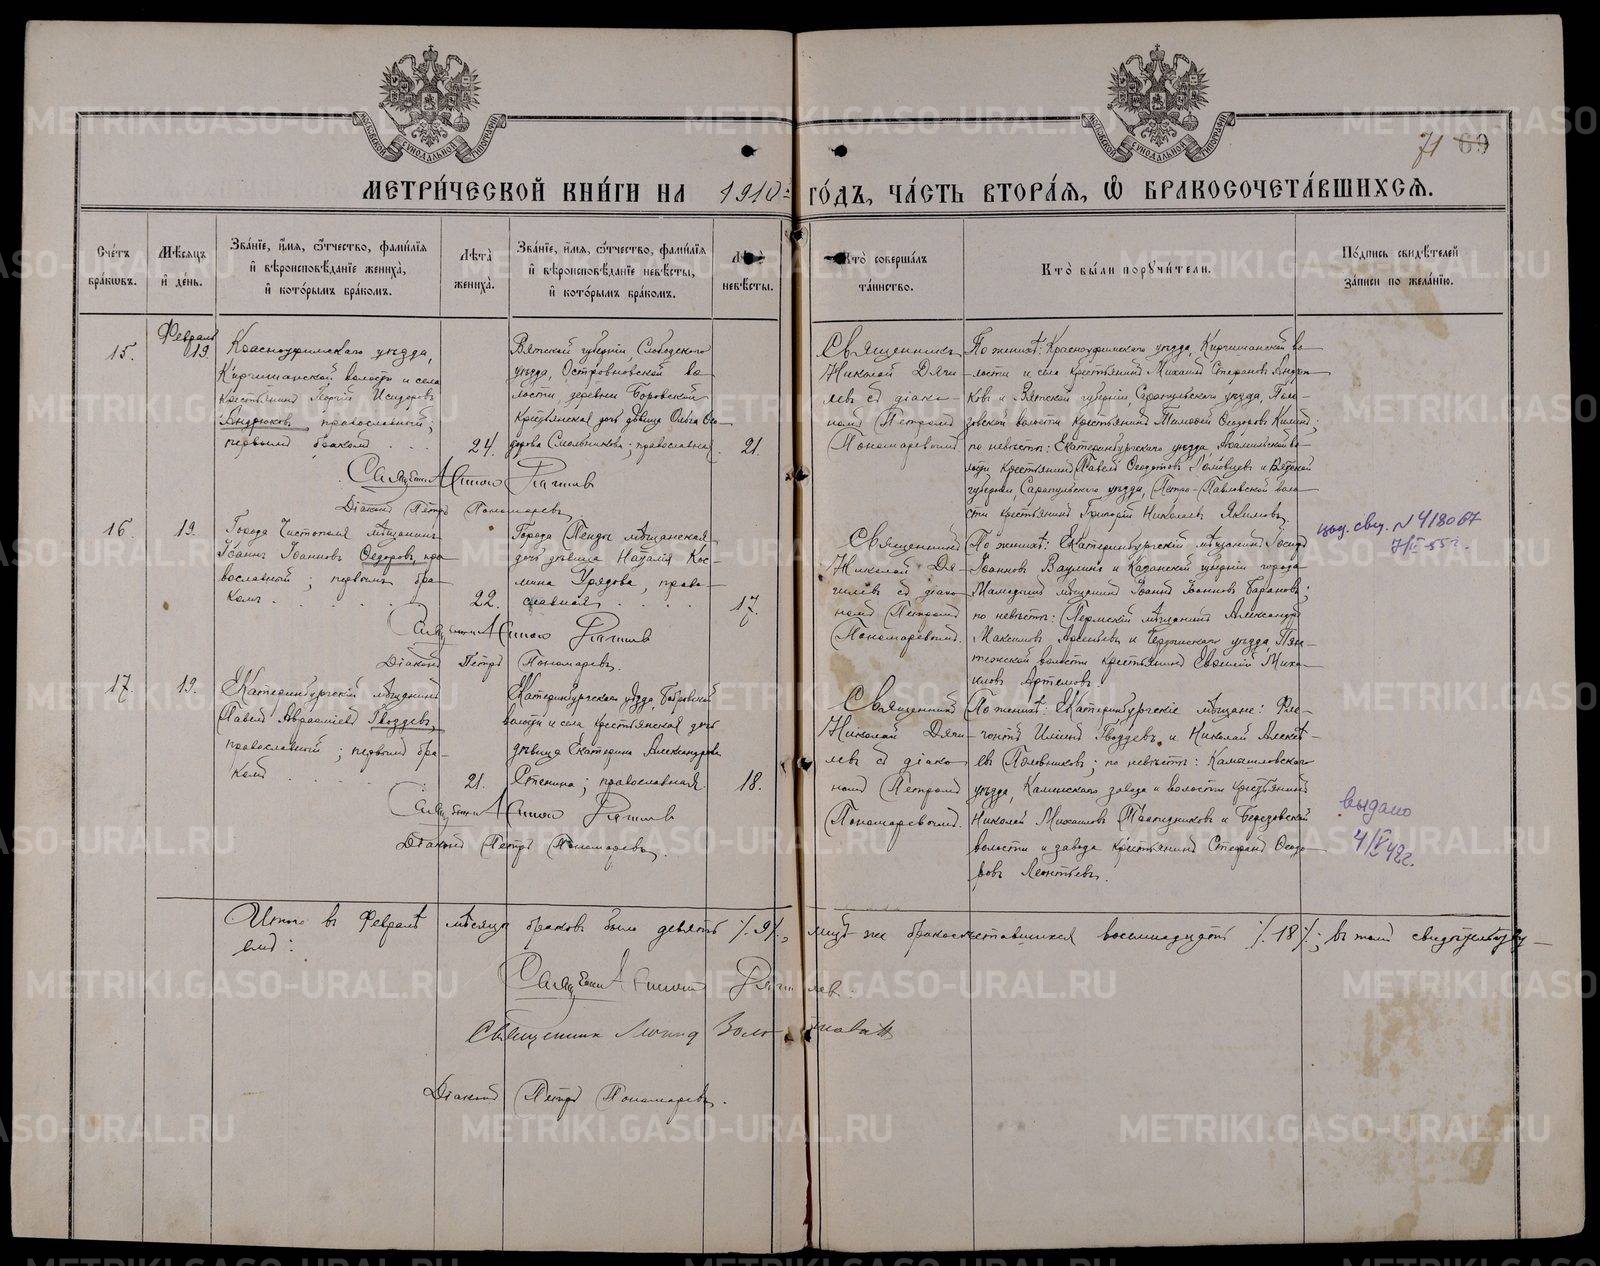 71 69
МЕТРИ́ЧЕСКОЙ КНИ́ГИ НА 1910 ГО́ДЪ, ЧА́СТЬ ВТОРА́Я, Ѽ БРАКОСОЧЕТА́ВШИХСЯ.
Сче́тъ бра́кωвъ.
Мѣ́сяцъ и҆ де́нь.
Зва́нїе, и҆́мя, ѻ҆́тчество, фами́лїя и҆ вѣроисповѣ́данїе жениха̀, и҆ кото́рымъ бра́комъ.
Лѣ́та жениха̀.
Зва́нїе, и҆́мя, ѻ҆́тчество, фами́лїя и҆ вѣроисповѣ́данїе невѣ́сты, и҆ кото́рымъ бра́комъ.
Лѣ́та невѣ́сты.
Кто̀ соверша́лъ та́инство.
Кто̀ бы́ли порꙋчи́тели.
По́дпись свидѣ́телей за́писи по жела́нїю.
15.
Февраль
19.
Красноуфимскаго уѣзда,
Киргишанской волости и села
крестьянинъ Георгій Исидоровъ
Андрюковъ, православный;
первымъ бракомъ
24.
Вятской губерніи, Слободского
уѣзда, Островновской во-
лости, деревни Боровской
крестьянская дочь дѣвица Ольга Ѳео-
дорова Смольникова; православная.
21.
Священникъ
Николай Дяги-
левъ съ діако-
номъ Петромъ
Пономаревымъ.
По женихѣ: Красноуфимскаго уѣзда, Киргишанской во-
лости и села крестьянинъ Михаилъ Стефановъ Андрю-
ковъ и Вятской губерніи, Сарапульскаго уѣзда, Поло-
зовской волости крестьянинъ Тимоѳей Ѳеодоровъ Килинъ;
по невѣстѣ: Екатеринбургскаго уѣзда, Арамильской во-
лости крестьянинъ Павелъ Ѳедотовъ и Вятской
губерніи, Сарапульскаго уѣзда, Петро-Павловской воло-
сти крестьянинъ Григорій Николаевъ Якимовъ.
Діаконъ Петръ Пономаревъ.
16.
19.
Города Чистополя мѣщанинъ
Іоаннъ Іоанновъ Ѳедоровъ, пра-
вославный; первымъ бра-
комъ.
22.
Города мѣщанская
дочь дѣвица Наталія Кос-
мина Урядова, право-
славная
17.
Священникъ
Николай Дя-
гилевъ съ діако-
номъ Петромъ
Пономаревымъ.
По женихѣ: Екатеринбургскій мѣщанинъ Іосифъ
Іоанновъ Ваулинъ и Казанской губерніи города
Мамадыша мѣщанинъ Іоаннъ Іоанновъ Барановъ;
по невѣстѣ: Пермскій мѣщанинъ Александръ
Максимовъ и Чердынскаго уѣзда, Пян-
тежской волости крестьянинъ Евѳимій Миха-
иловъ Артемовъ.
№ 418067
Діаконъ Петръ Пономаревъ.
17.
19.
Екатеринбургскій мѣщанинъ
Павелъ Авраамовъ Гвоздевъ,
православный; первымъ бра-
комъ
21.
Екатеринбургскаго уѣзда, Бобровской
волости и села крестьянская дочь
дѣвица Екатерина Александрова
православная.
18.
Священникъ
Николай Дяги-
левъ съ діако-
номъ Петромъ
Пономаревымъ.
По женихѣ: Екатеринбургскіе мѣщане: Фле-
гонтъ Гвоздевъ и Николай Алексѣ-
евъ Половниковъ; по невѣстѣ: Камышловскаго
уѣзда, Каменскаго завода и волости крестьянинъ
Николай Михаиловъ и Березовской
волости и завода крестьянинъ Стефанъ Ѳеодо-
ровъ Леонтьевъ.
выдано
4/V 42г.
Діаконъ Петръ Пономаревъ.
Итого въ Февралѣ мѣсяцѣ браковъ было девять /.9/., лицъ же бракосочетавшихся восемнадцать /.18/.; въ томъ свидѣтельству-
емъ:
Священникъ
Діаконъ Петръ Пономаревъ.
METRIKI.GASO-URAL.RU